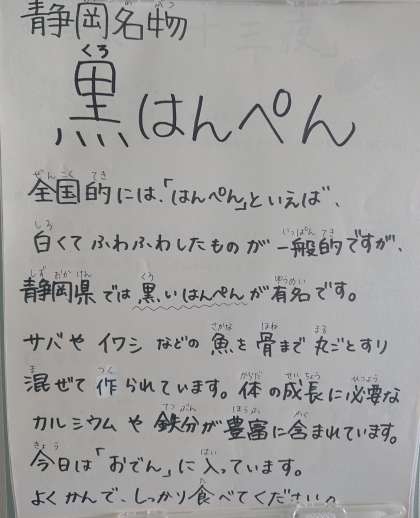 静岡名物
黒はんぺん
全国的には、「はんぺん」といえば、
白くてふわふわしたものが一般的ですが、
静岡県では黒いはんぺんが有名です。
サバやイワシなどの魚を骨まで丸ごとすり
混ぜて作られています。体の成長に必要な
カルシウムや鉄分が豊富に含まれています。
今日は「おでん」に入っています。
よくかんで、しっかり食べてください。